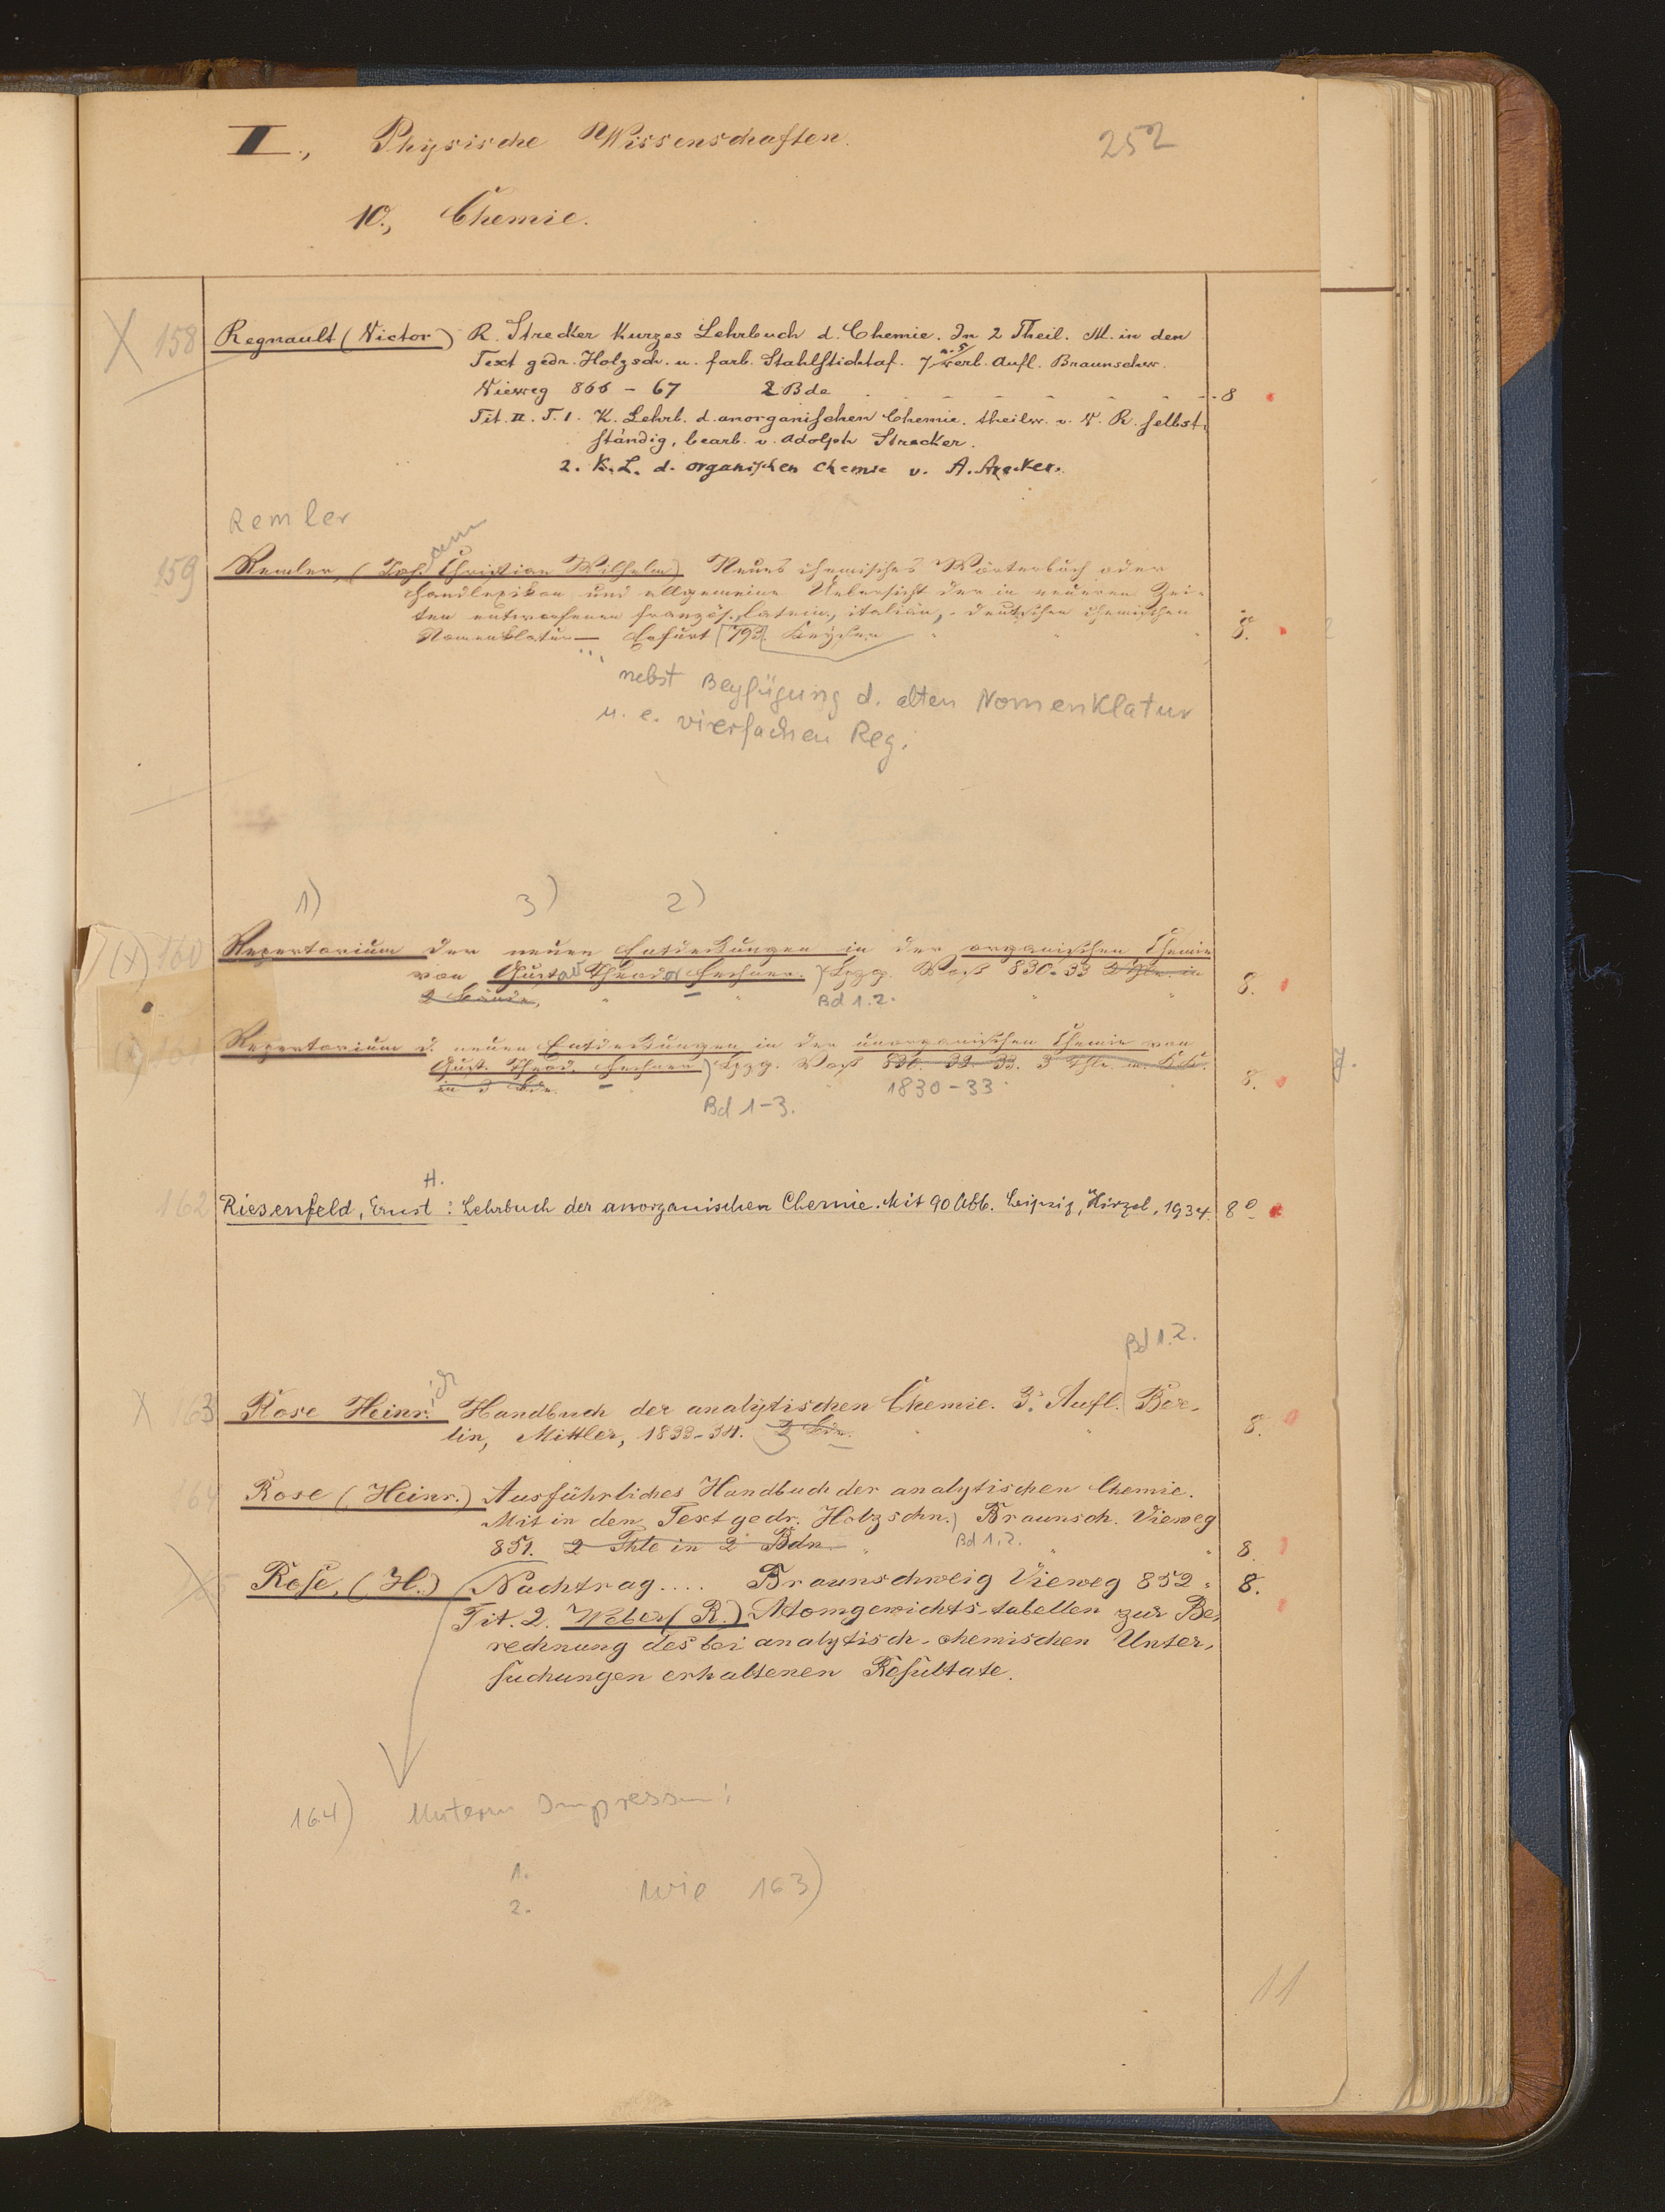 II., Physische Wissenschaften. 252
10., Chemie.
X 158 Regnault (Victor) R. Strecker Kurzes Lehrbuch d. Chemie. In 2 Theil. M. in den
Text gedr. Holzsch. u. farb. Stahlstichtaf. 7. verb. Aufl. Braunschw.
Vieweg 866 - 67 2 Bde 8
Tit. II. T. 1. K. Lehrb. d. anorganischen Chemie. theilw. v. V. R. selbst-
ständig, bearb. v. Adolph Strecker.
2. K. L. d. organischen Chemie v. A. Strecker.
Remler
159 Remler, (Joh. Christian Wilhelm) Neues chemisches Wörterbuch oder
Handlexikon und allgemeine Uebersicht der in neueren Zei-
ten entworfenen französ., latein., italiän., deutschen chemischen
Nomenklatur — Erfurt 793. Keyser 8.
nebst Beyfügung d. alten Nomenklatur
u. e. vierfachen Reg.
1) 3) 2)
(x) 160 Repertorium der neuen Entdeckungen in der organischen Chemie
von Gustav Theodor Fechner. Lpzg. Voss 830-33 2 Thle. in
2 Bände, Bd 1.2. 8.
161 Repertorium d. neuen Entdeckungen in der unorganischen Chemie von
Gust. Theod. Fechner) Lpzg. Voss 830. 32. 33. 3 Thle.
in 3 Bde. 1830-33 8.
Bd 1-3.
H.
162 Riesenfeld, Ernst: Lehrbuch der anorganischen Chemie. Mit 90 Abb. Leipzig, Hirzel, 1934. 8º
Bd 1.2.
X 163 Rose Heinr. Handbuch der analytischen Chemie. 3. Aufl. Ber-
lin, Mittler, 1833-34. 2 Bde. 8.
164 Rose (Heinr.) Ausführliches Handbuch der analytischen Chemie.
Mit in den Text gedr. Holzschn.) Braunsch. Vieweg
851. 2 Thle in 2 Bdn. Bd 1.2. 8.
Rose, (H.) Nachtrag.... Braunschweig Vieweg 852. 8.
Tit. 2. Weber (R.) Atomgewichts-tabellen zur Be-
rechnung des bei analytisch-chemischen Unter-
suchungen erhaltenen Resultate.
164) Unterm Impressum:
1.
2. wie 163)
11